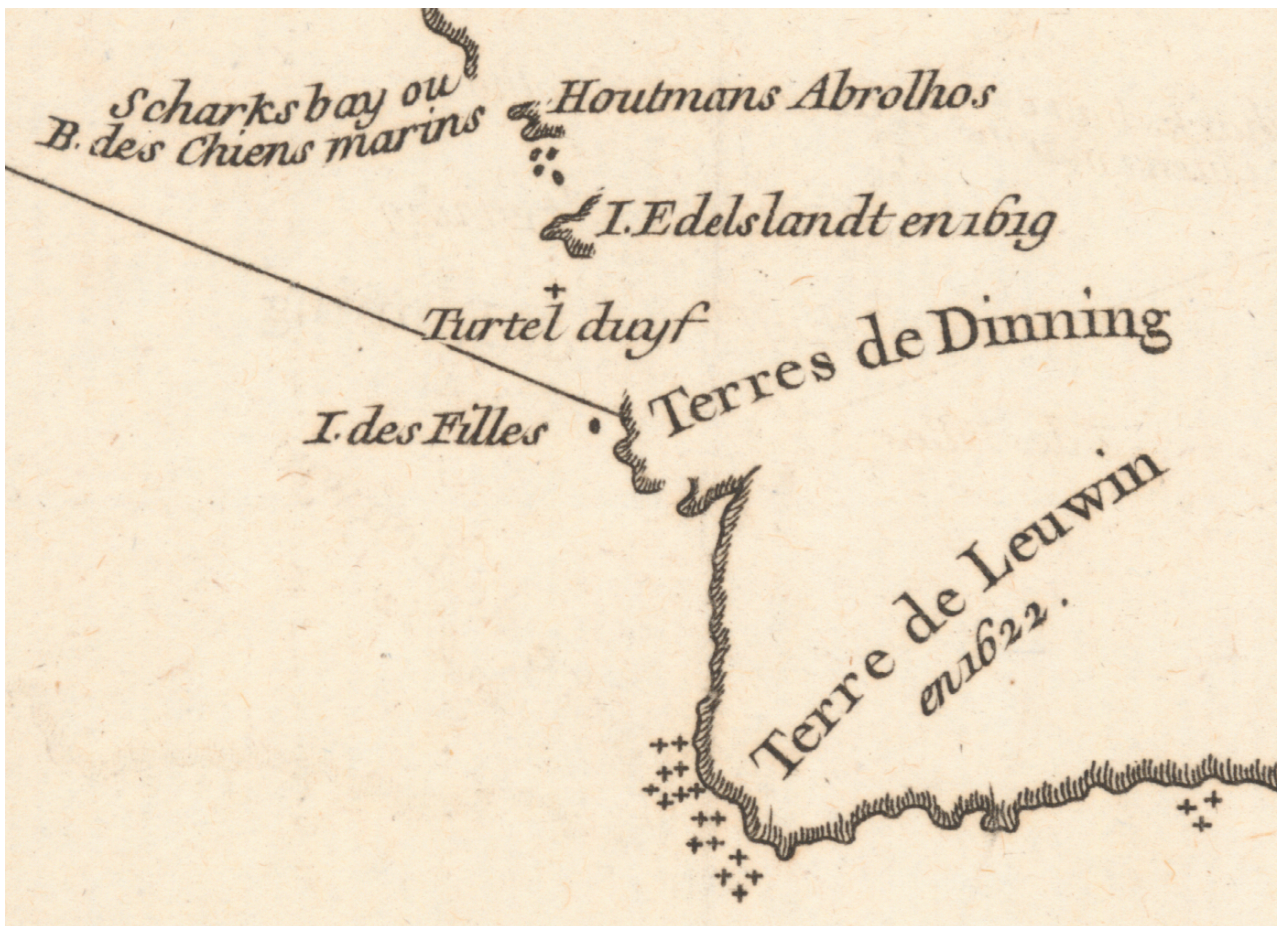 Scharksbay ou
B. des Chiens marins
Houtmans Abrolhos
I. Edelslandt en 1619
Turtel duyf
Terres de Dinning
I. des Filles
Terre de Leuwin
en 1622.